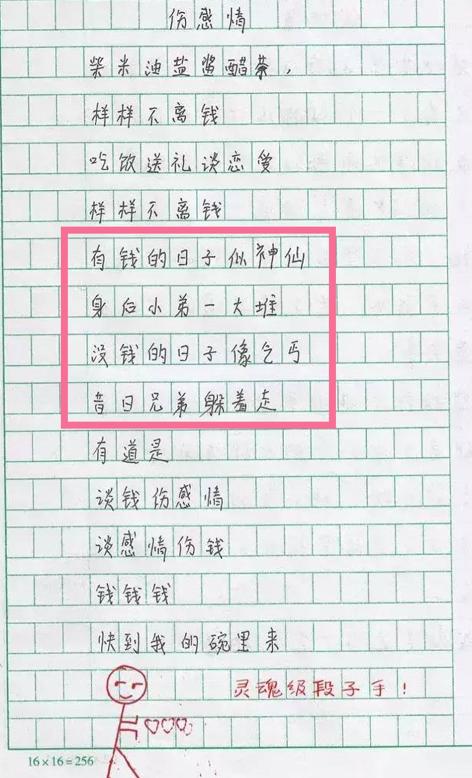 伤感情
柴米油盐酱醋茶,
样样不离钱
吃饭送礼谈恋爱
样样不离钱
有钱的日子似神仙
身后小弟一大堆
没钱的日子像乞丐
昔日兄弟躲着走
有道是
谈钱伤感情
谈感情伤钱
钱钱钱
快到我的碗里来
灵魂级段子手!
16×16=256